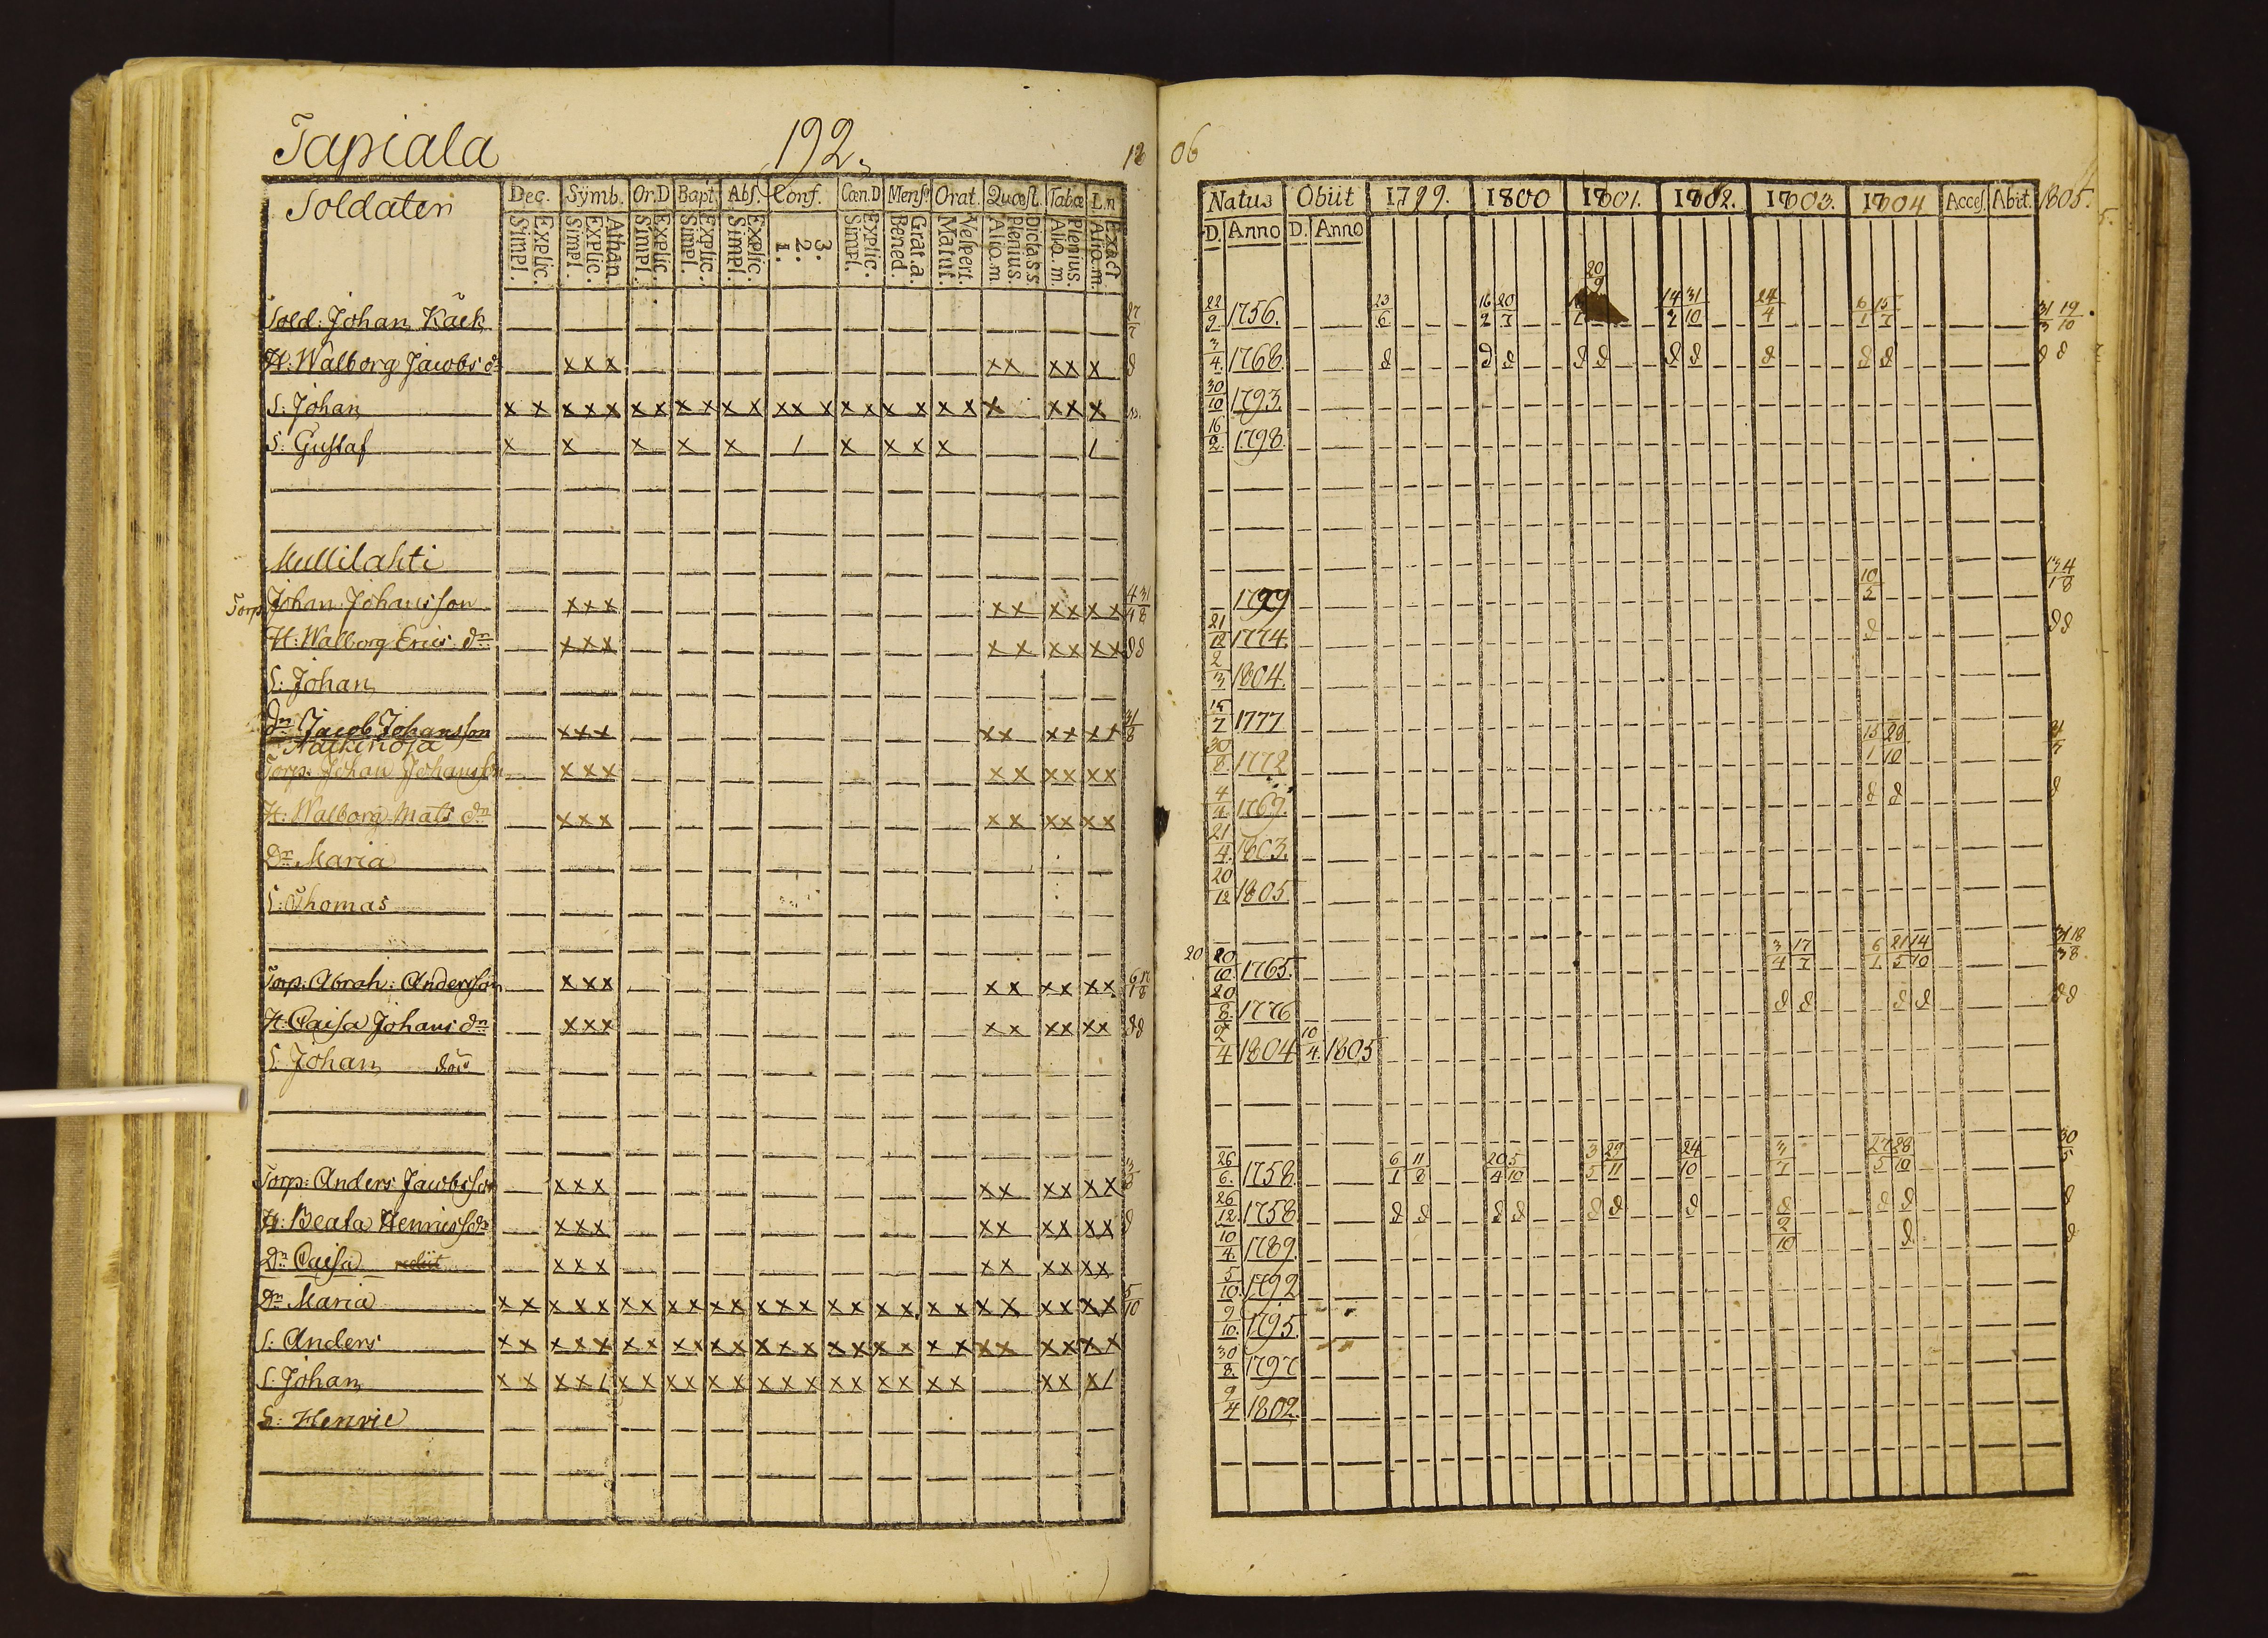 Tapiala 192. 18 06
Soldaten Dec. Symb. Or.D Bapt. Abs. Conf. Cœn.D Mens. Orat. Quæst. Tabæ L.n
Explic. Simpl. Athan. Explic. Simpl. Explic. Simpl. Explic. Simpl. Explic. Simpl. 3. 2. 1. Explic. Simpl. Grat.a. Bened. Vespert. Matut. Dictass Plenius. Alio.m Plenius. Alio.m. Exact Alio.m.
Sold: Johan Käck 27/7
H: Walborg Jacobs dr x x x x x x x x d
S: Johan x x x x x x x x x x x x x x x x x x x x x x x x
S: Gustaf x x x x x 1 x x x x 1
Mullilahti
Torp Johan Johansson x x x x x x x x x 4/4 31/8
H: Walborg Erics dr x x x x x x x x x d d
S: Johan
Dn Jacob Johansson x x x x x x x x x 31/8
Torp: Johan Johansson x x x x x x x x x
H: Walborg Mats dr x x x x x x x x x
Dr Maria
S: Thomas
Torp: Abrah: Andersson x x x x x x x x x
H: Caisa Johans dr x x x x x x x x x d d
S. Johan död
Torp: Anders Jacobsson x x x x x x x x x
H: Beata Henricsdr x x x x x x x x x d
Dr Caisa x x x x x x x x x
Dr Maria x x x x x x x x x x x x x x x x x x x x x x x x x x 5/10
S: Anders x x x x x x x x x x x x x x x x x x x x x x x x x x
S: Johan x x x x 1 x x x x x x x x x x x x x x x x x x 1
S: Henric
Natus Obiit 1799. 1800 1801. 1802. 1803. 1804 Acces. Abit. 1805.
D. Anno D. Anno
22/2 1756. 23/6 16/2 20/7 20/9 14/2 31/10 24/4 6/1 15/7 31/3 19/10
3/4. 1768. d d d d d d d d d d d d
30/10 1793.
16/2. 1798.
1799 10/5 13/1 4/8
21/12 1774. d d d
2/3 1804.
15/7 1777
30/8. 1772 15/1 28/10
4/4. 1769. d d d
21/4. 1803.
20/12 1805
20 20/10 1765. 3/4 17/7 6/1 21/5 14/10 31/3 18/8
20/8. 1776 d d d d d d
2/4 1804 10/4. 1805
26/6. 1758. 6/1 11/8 20/4 5/10 3/5 29/11 24/10 3/7 27/5 28/10 30/5
26/12. 1758 d d d d d d d d d d d
10/4. 1789 2/10 d d
5/10. 1792
9/10. 1795.
30/8. 1797
9/4 1802.